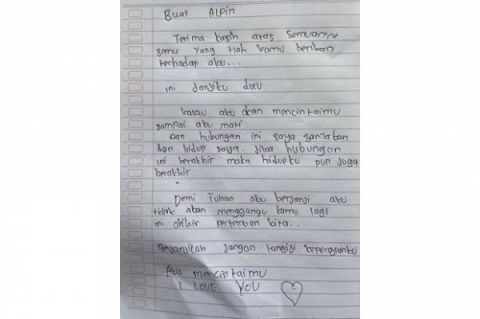 Buat Alpin
Terima kasih atas semuanya
semu yang tlah kamu berikan
terhadap aku...
ini janjiku dulu
kalau aku akan mencintaimu
sampai aku mati.
Dan hubungan ini saya samakan
dan hidup saya. Jika hubungan
ini berakhir maka hidupku pun juga
berakhir
Demi Tuhan aku berjanji aku
tidak akan mengganggu kamu lagi
ini akhir pertemuan kita...
jangan tangisi kepergianku
Aku mencintaimu
I LOVE YOU